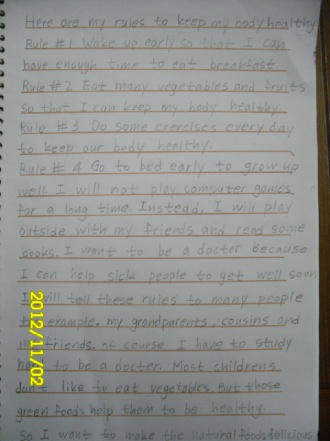 Here are my rules to keep my body healthy
Rule #1 Wake up early so that I can
have enough time to eat breakfast
Rule #2 Eat many vegetables and fruits
so that I can keep my body healthy.
Rule #3 Do some exercises every day
to keep our body healthy.
Rule #4 Go to bed early to grow up
well I will not play computer games
for a long time. Instead, I will play
outside with my friends and read some
books. I want to be a docter because
I can help sick people to get well soon
I will tell these rules to many people
example. my grandparents, cousins and
friends. of course I have to study
to be a docter. Most childrens
don't like to eat vegetables. But those
green foods help them to be healthy.
So I want to make the natural foods delicious
2012/11/02